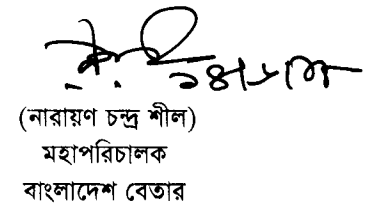 (নারায়ণ চন্দ্র শীল)
মহাপরিচালক
বাংলাদেশ বেতার